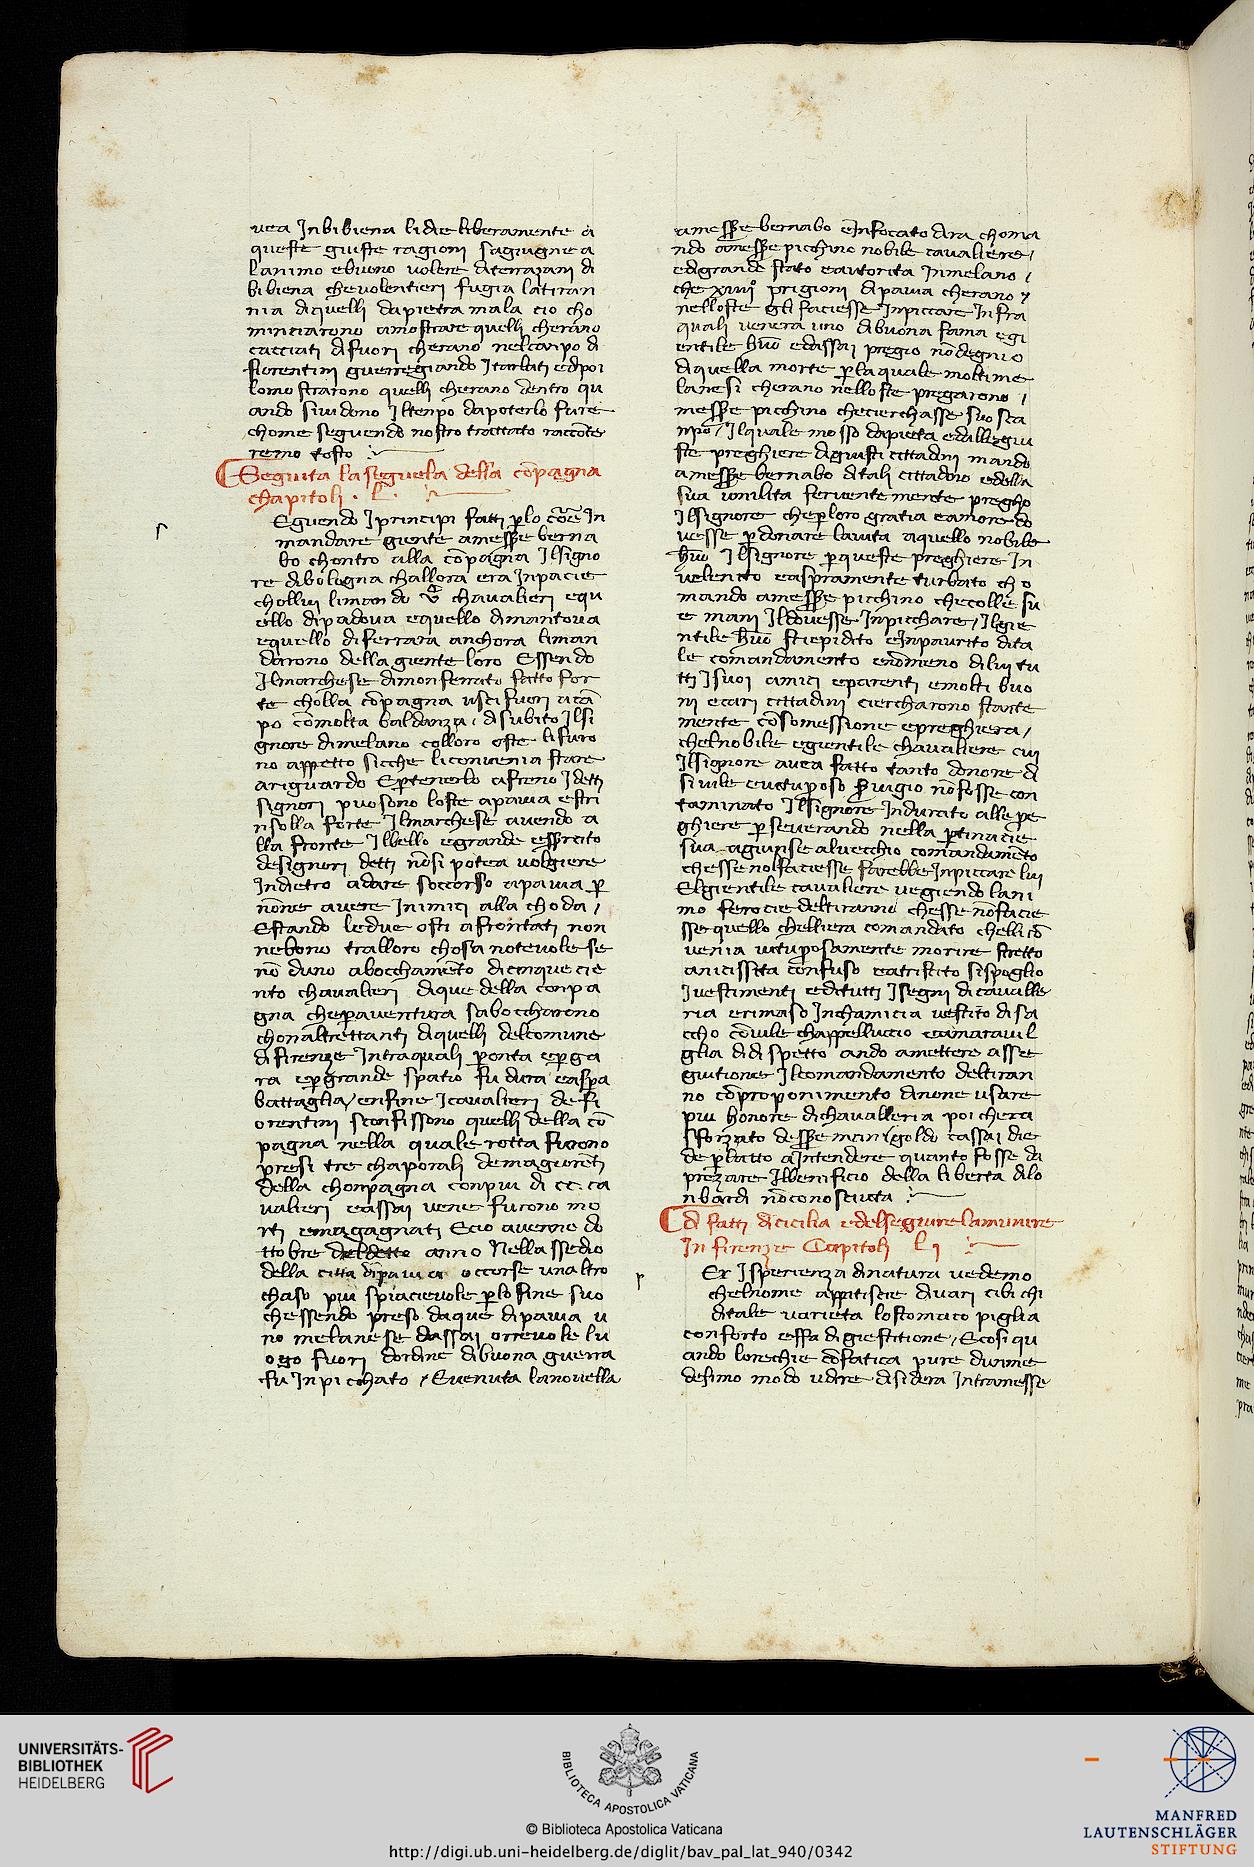 vea Inbibiena li die liberamente a
queste giuste ragioni sagiugne a
lanimo ebuono volere diterazani di
bibiena chevolentieri fugia latiran
nia diquelli dapietra mala cio cho
minciarono amostrare quelli cherano
cacciati difuori cherano nelcanpo di
fiorentini guerregiando Itarlati edipoi
lomostrarono quelli cherano dentro qu
ando sividono Iltenpo dapoterlo fare
chome seguendo nostro trattato racconte
remo tosto
Seguita laseguela della cōpagna
chapitoli . L .
Eguendo Iprincipi fatti plo cōe In
mandare giente amesse berna
bo chontro alla cōpagna Ilsigno
re dibologna challora era Inpacie
chollui limando v chavalieri equ
ello dipadova equello dimantova
equello diferrara anchora liman
darono della giente loro Essendo
Ilmarchese dimonferrato fatto for
te cholla cōpagna usci fuori acā
po cōmolta baldanza, disubito Ilsi
gnore dimelano colloro oste lifuro
no appetto sicche liconvenia stare
ariguardo Eptenerlo afreno Idetti
signori puosono loste apavia estri
nsolla forte Ilmarchese avendo a
lla fronte Ilbello egrande essercito
designori detti nōsi potea volgiere
Indietro adare soccorso apavia p
nōne avere Inimici alla choda,
Estando ledue osti afrontati non
nebono tralloro chosa notevole se
nō duno abocchamēto dicinquecie
nto chavalieri dique della conpa
gna chepaventura saboccharono
chonaltrettanti diquelli delcomune
difirenze Intraquali ponta epga
ra epgrande spatio fu dura easpa
battaglia, enfine Icavalieri de fi
orentini sconfissono quelli della cō
pagna nella quale rotta furono
presi tre chaporali demagiorēti
della chonpagna conpiu di cc. ca
valieri eassai vene furono mo
rti emagagnati Ecio avenne do
ttobre deldetto anno Nellassedio
della citta dipavia occorse unaltro
chaso piu spiacievole plofine suo
chessendo preso daque dipavia u
no melanese dassai orrevole lu
ogo fuori dordine dibuona guerra
fu Inpicchato, Evenuta lanovella
amesse bernabo enfocato dira choma
ndo amesse picchino nobile cavaliere,
edigrande stato eautorita Inmelano,
che xiiii prigioni dipavia cherano
nelloste gli faciesse Inpiccare Infra
quali venera uno dibuona fama egi
entile huō edassai pregio nōdegnio
diquella morte plaquale moltime
lanesi cherano nelloste pregarono,
messe picchino checierchasse suo sca
npo, Ilquale mosso dapieta edallegiu
ste preghiere dagiusti cittadini mando
amesse bernabo ditali cittadino edella
sua umilita ferventemente pregho
Ilsignore cheploro gratia eamore do
vesse pdonare lavita aquello nobile
huō Ilsignore pqueste preghiere In
velenito easpramente turbato cho
mando amesse picchino checolle su
e mani Ildovesse Inpicchare, Ilgie
ntile huō stiepidito eInpaurito dita
le comandamento enōmeno dilui tu
tti Isuoi amici eparenti emolti buo
ni ecari cittadini ciercharono stante
mente cōsomessione epreghiera,
chelnobile egientile chavaliere cui
Ilsignore avea fatto tanto donore di
sivile evituposo suigio nōfosse con
taminato Ilsignore Indurato alle pe
ghiere pseverando nella ptinacie
sua agiunse alvecchio comandamēto
chessenolfaciesse farebbe Inpiccare lui
Elgientile cavaliere vegiendo lani
mo ferocie deltiranno chesse nōfacie
sse quello chelliera comandato chellicō
venia vituposamente morire stretto
anicissita confuso eatristito sispoglio
Ivestimenti editutti Isegni dicavalle
ria erimaso Inchamicia vestito disa
ccho cōvile chappelluccio eamaravil
glia didispetto ando amettere asse
guitione Ilcomandamento deltiran
no cōproponimento dinone usare
piu honore dichavalleria poi chera
sforzato desse manigoldo eassai die
de platto aIntendere quanto fosse da
prezare Ilbenificio della liberta dilo
nbardi nōconosciuta
di fatti dicicilia edelseguire lamuniere
In firenze Capitoli L i
Er Isperienza dinatura vedemo
chelnome appitiscie divari cibi chi
ditale varieta lostomaco piglia
conforto effa digiestitione, Ecosi qu
ando lorechie cōfatica pure dunme
desimo modo udire disidera Intramesse
UNIVERSITÄTS-
BIBLIOTHEK
HEIDELBERG
BIBLIOTECA APOSTOLICA VATICANA
© Biblioteca Apostolica Vaticana
http://digi.ub.uni-heidelberg.de/diglit/bav_pal_lat_940/0342
MANFRED
LAUTENSCHLÄGER
STIFTUNG